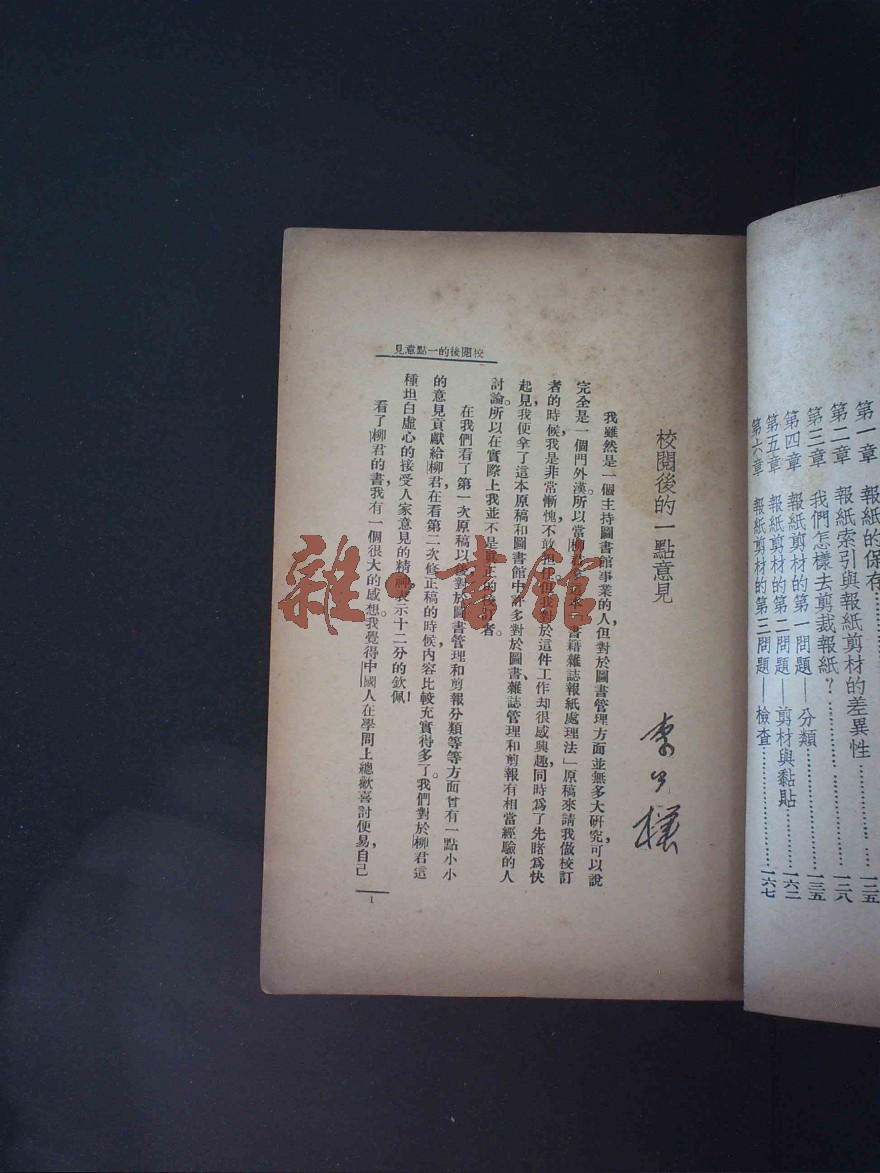 第一章　報紙的保有
第二章　報紙索引與報紙剪材的差異性……一三八
第三章　我們怎樣去剪裁報紙？……一三五
第四章　報紙剪材的第一問題——分類
第五章　報紙剪材的第二問題——剪材與黏貼……一六二
第六章　報紙剪材的第三問題——檢查……一六七
校閱後的一點意見
李公樸
我雖然是一個主持圖書館事業的人，但對於圖書管理方面並無多大研究，可以說
完全是一個門外漢。所以當柳君 本「書籍雜誌報紙處理法」原稿來請我做校訂
者的時候，我是非常慚愧，不敢 我對於這件工作却很感興趣，同時爲了先睹爲快
起見，我便拿了這本原稿和圖書館中許多對於圖書、雜誌管理和剪報有相當經驗的人
討論。所以在實際上我並不是眞正的校訂者。
在我們看了第一次原稿以後，對於圖書管理和剪報分類等等方面曾有一點小小
的意見貢獻給柳君，在看第二次修正稿的時候，內容比較充實得多了。我們對於柳君這
種坦白虛心的接受人家意見的精神，表示十二分的欽佩！
看了柳君的書，我有一個很大的感想。我覺得中國人在學問上總歡喜討便易，自己
校閱後的一點意見
1
雜·書館